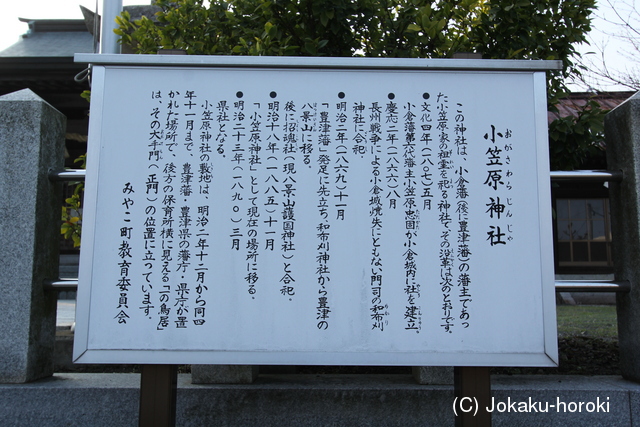 小笠原神社
おがさわらじんじゃ
この神社は、小倉藩(後に豊津藩)の藩主であっ
た小笠原家の祖霊を祀る神社で、その沿革は次のとおりです。
●文化四年(一八〇七)五月
小倉藩第六代藩主小笠原忠固が小倉城内に社を建立。
●慶応二年(一八六六)八月
長州戦争による小倉城焼失にともない門司の和布刈
神社に合祀。
●明治二年(一八六九)十一月
「豊津藩」発足に先立ち、和布刈神社から豊津の
八景山に移る。
後に招魂社(現八景山護国神社)と合祀。
●明治十八年(一八八五)十一月
「小笠原神社」として現在の場所に移る。
●明治二十三年(一八九〇)三月
県社となる。
小笠原神社の敷地は、明治二年十二月から同四
年十一月まで、豊津藩・豊津県の藩庁・県庁が置
かれた場所で、後方の保育所横に見える「一の鳥居」
は、その大手門(正門)の位置に立っています。
みやこ町教育委員会
(C) Jokaku-horoki